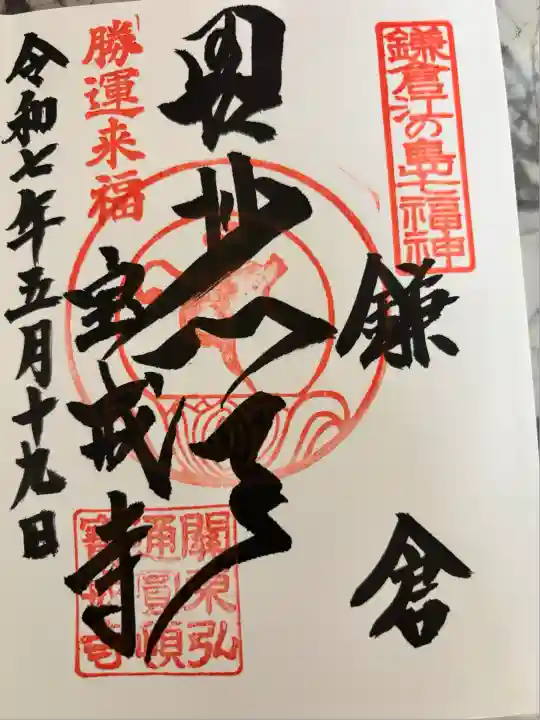 鎌倉江の島七福神
鎌倉
毘沙門天
勝運来福
宝戒寺
令和七年五月十九日
關東弘
通圓頓
寶戒寺